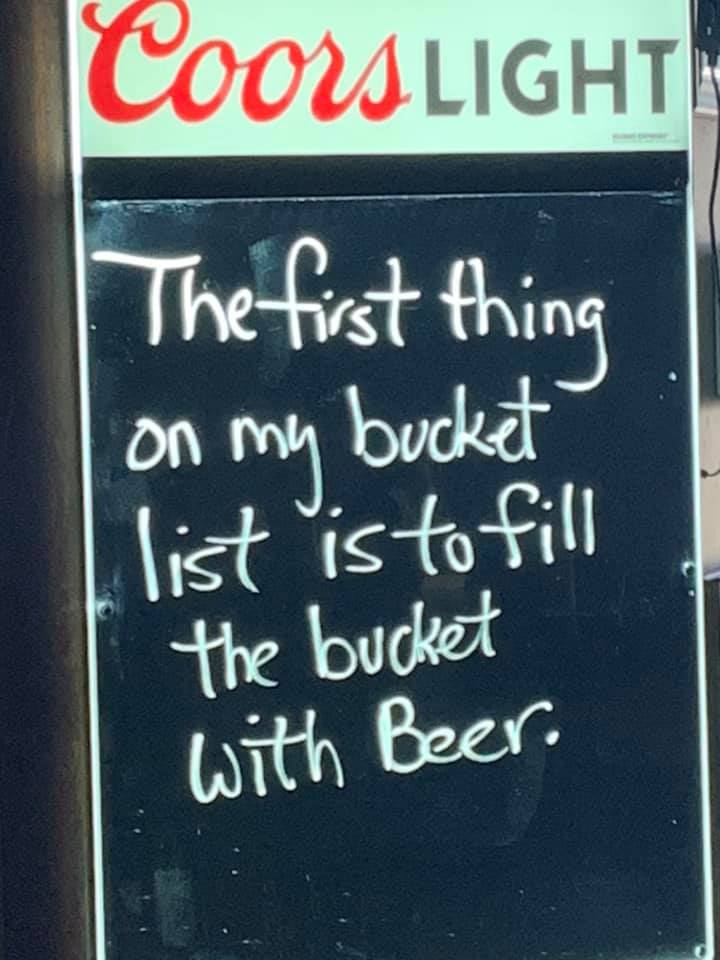 Coors LIGHT
The first thing
on my bucket
list is to fill
the bucket
with Beer.